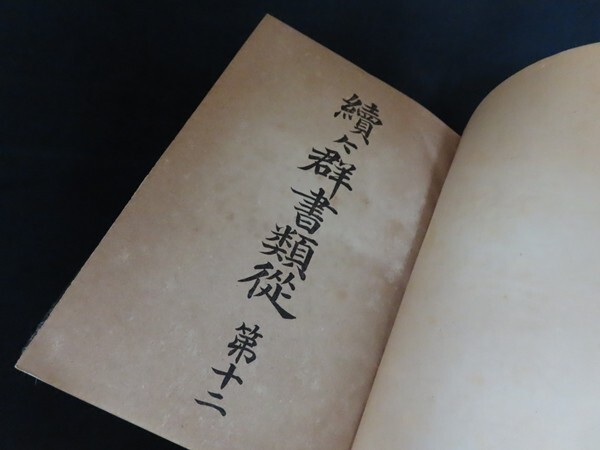 續々群書類從 第十二